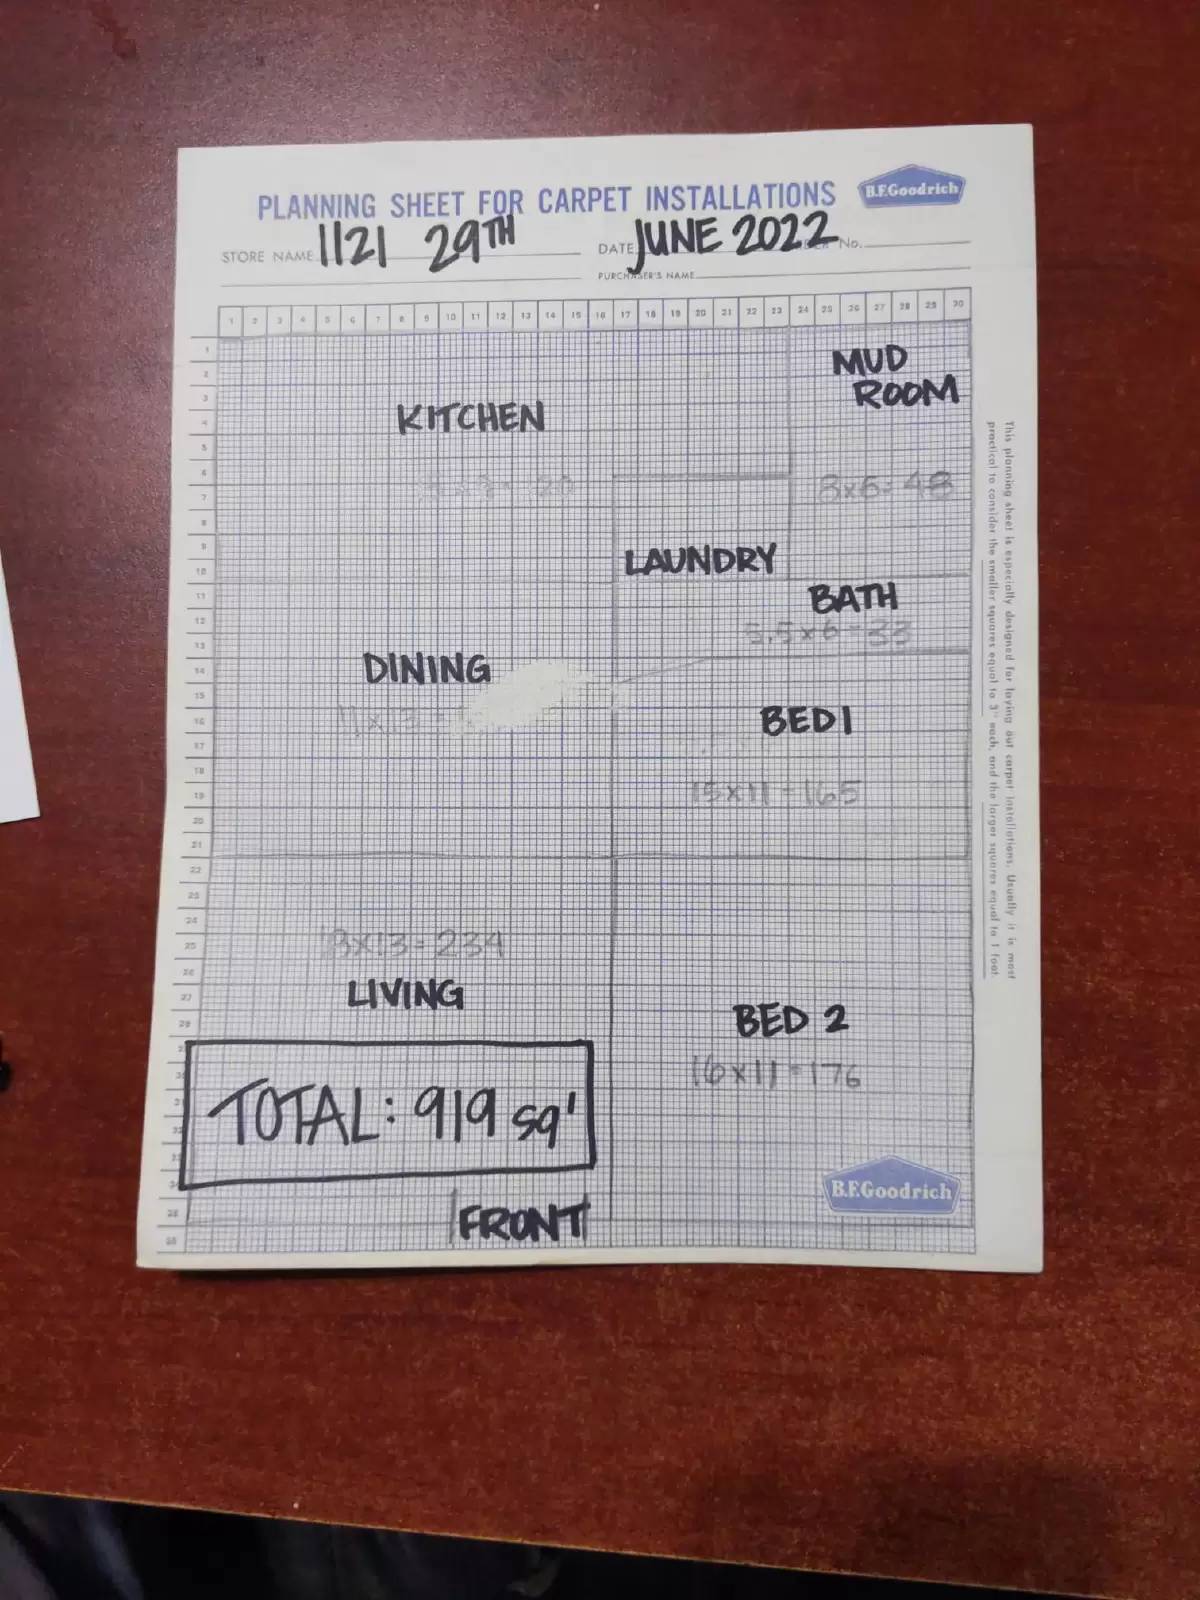 PLANNING SHEET FOR CARPET INSTALLATIONS
B.F.Goodrich
STORE NAME 1121 29TH DATE JUNE 2022 No.
PURCHASER'S NAME
1 2 3 4 5 6 7 8 9 10 11 12 13 14 15 16 17 18 19 20 21 22 23 24 25 26 27 28 29 30
1
2
3
4
5
6
7
8
9
10
11
12
13
14
15
16
17
18
19
20
21
22
23
24
25
26
27
28
MUD
ROOM
KITCHEN
8x6=48
LAUNDRY
BATH
5.5x6=33
DINING
11x13=
BED1
15x11=165
18x13=234
LIVING
BED 2
16x11=176
TOTAL: 919 sq'
B.F.Goodrich
FRONT
This planning sheet is especially designed for laying out carpet installations. Usually it is most
practical to consider the smaller squares equal to 3" each, and the larger squares equal to 1 foot.